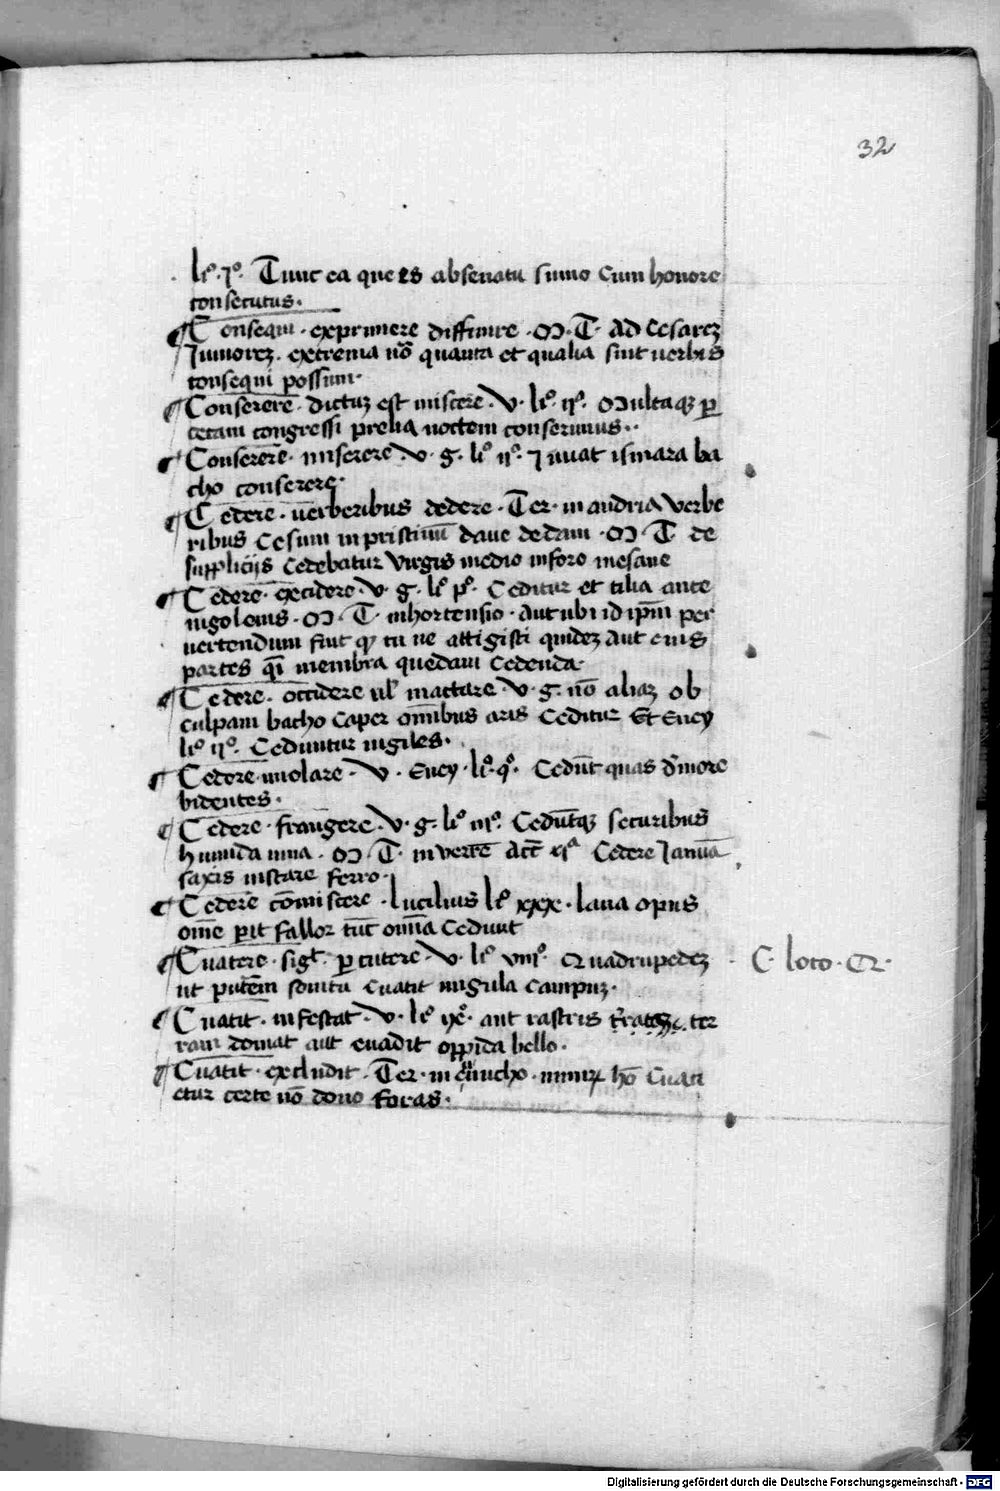 32
lº. 1º. Tunc ea que es absenatu sumo cum honore
consecutus.
Consequi. exprimere diffinire. M. T. Ad Cesarez
Juniorez. extrema nō quanta et qualia sint uerbis
consequi possum.
Conserere. dictuz est miscere. V. lº. ijº. Multaqz per
cecam congressi prelia noctem conserimus.
Conserere. inserere. V. g. liº ijº. Juuat ismara ba
cho conserere.
Cedere. uerberibus dedere. Ter. in andria Verbe
ribus Cesum in pristinū daue dedam. M. T. de
suppliciis Cedebatur Virgis medio in foro mesane
Cedere. excidere. V. g. lº. pº. Ceditur et tilia ante
iugo leuis. M. T. in hortensio. Aut ubi id ipm per
uertendum fiut qz tu ne attigisti quidez aut eius
partes qī membra quedam Cedenda.
Cedere. occidere ul mactare. V. g. nō aliaz ob
culpam bacho Caper omībus aris Ceditur Et Eney
liº ijº. Ceduntur uigiles.
Cedere. imolare. V. Eney. lº. qº. Cedūt quas d' more
bidentes.
Cedere. frangere. V. g. lº iijº. Cedūtqz securibus
humida uina. M. T. in verrē Act ijª Cedere Januā
saxis instare ferro.
Cedere cōmiscere. Lucilius lº xxx. laua opus
ome perit fallor tūc omīa Cedunt
Cuatere. sigt. percutere. V. lº viijº. Quadrupedez
ut putem sonitu Cuatit ungula Campuz.
C. loco. Q.
Cuatit. infestat. V. lº ixº. aut rastris ter
ram domat aut euadit oppida bello.
Cuatit. excludit. Ter. in eunucho. hō Cuati
etur certe nō dono foras.
Digitalisierung gefördert durch die Deutsche Forschungsgemeinschaft - DFG